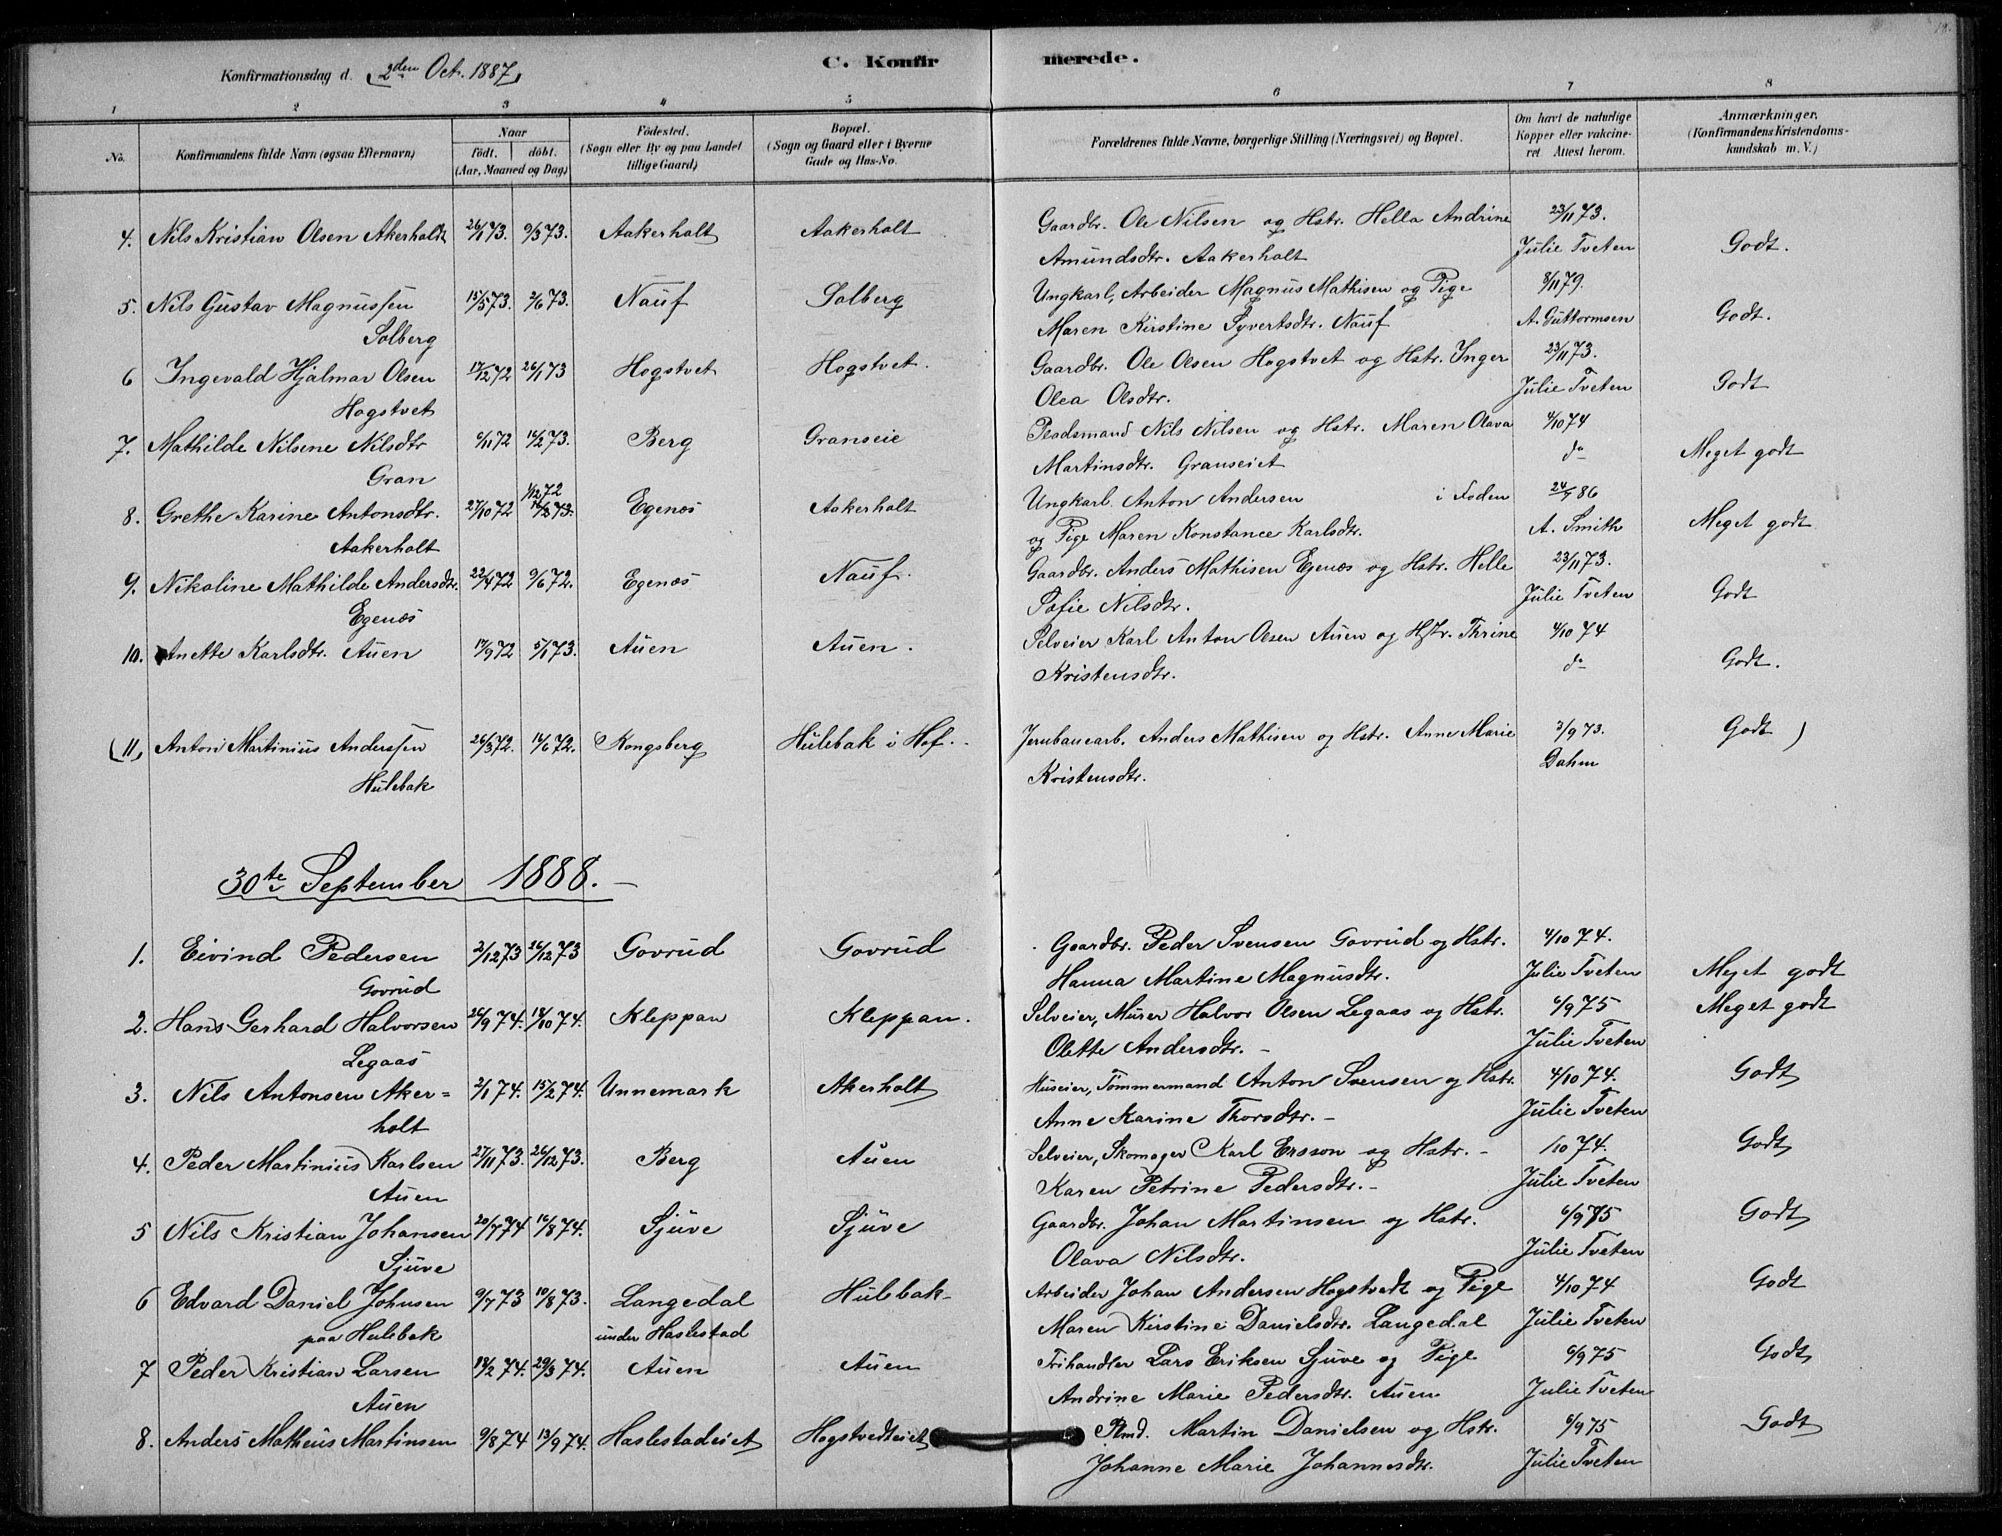 Konfirmationsdag d. 2den Oct. 1887
C. Konfirmerede.
1 2 3 4 5 6 7 8
No. Konfirmandens fulde Navn (ogsaa Efternavn) Naar født. døbt. (Aar, Maaned og Dag) Fødested. (Sogn eller By og paa Landet tillige Gaard) Bopæl. (Sogn og Gaard eller i Byerne Gade og Hus-No. Forældrenes fulde Navne, borgerlige Stilling (Næringsvei) og Bopæl. Om havt de naturlige Kopper eller vakcineret Attest herom. Anmærkninger. (Konfirmandens Kristendomskundskab m. V.)
4. Nils Kristian Olsen Akerholt 26/1 73. 9/3 73. Aakerholt Aakerholt Gaardbr. Ole Nilsen og Hstr. Hella Andrine 23/11 73.
Amundsdtr. Aakerholt Julie Tveten Godt.
5. Nils Gustav Magnussen 15/5 73. 2/6 73. Nauf Solberg Ungkarl, Arbeider Magnus Mathisen og Pige 8/11 79.
Solberg Maren Kirstine Syvertsdtr. Nauf A. Guttormsen Godt.
6 Ingevald Hjalmar Olsen 17/12 72 26/1 73 Hogstvet Hogstvet. Gaardbr. Ole Olsen Hogstvet og Hstr. Inger 23/11 73.
Hogstvet Olea Olsdtr. Julie Tveten Godt
7. Mathilde Nilsine Nilsdtr 6/11 72 16/2 73. Berg Granseie Plsdsmand Nils Nilsen og Hstr. Maren Olava 4/10 74
Gran Martinsdtr. Granseiet do Meget godt
8. Grethe Karine Antonsdtr. 27/10 72 1/12 72 16/2 73. Egenæs Aakerholt Ungkarl. Anton Andersen i Foden 24/5 86
Aakerholt og Pige Maren Konstance Karlsdtr. A. Smith Meget godt
9. Nikoline Mathilde Andersdtr. 22/4 72 9/6 72. Egenæs Nauf. Gaardbr. Anders Mathisen Egenæs og Hstr. Helle 23/11 73.
Egenæs Sofie Nilsdtr. Julie Tveten Godt
10. Anette Karlsdtr. Auen 17/9 72 5/1 73. Auen Auen. Selveier Karl Anton Olsen Auen og Hstr. Thrine 4/10 74
Kristensdtr. do Godt.
(11) Anton Martinius Anderssen 26/3 72. 16/6 72. Kongsberg Hulebak i Hof. Jernbanearb. Anders Mathisen og Hstr. Anne Marie 3/9 73. Godt )
Hulebak Kristensdtr. Dahm
30te September 1888.
1. Eivind Pedersen 2/12 73 26/12 73 Govrud Govrud Gaardbr. Peder Svensen Govrud og Hstr. 4/10 74.
Govrud Hanna Martine Magnusdtr. Julie Tveten Meget godt
2. Hans Gerhard Halvorsen 26/9 74. 18/10 74. Kleppan Kleppan. Selveier, Murer Halvor Olsen Legaas og Hstr. 6/9 75 Meget godt
Legaas Olette Andersdtr. Julie Tveten
3. Nils Antonsen Aker= 2/1 74. 15/2 74. Unnemark Akerholt Huseier, Tømmermand Anton Svensen og Hstr. 4/10 74. Godt
holt Anne Karine Thorsdtr. Julie Tveten
4. Peder Martinius Karlsen 27/11 73. 26/12 73. Berg Auen Selveier, Skomager Karl Ersson og Hstr. /10 74. Godt
Auen Karen Petrine Pedersdtr. Julie Tveten
5 Nils Kristian Johansen 20/7 74 16/8 74. Sjuve Sjuve Gaardbr. Johan Martinsen og Hstr. 6/9 75 Godt
Sjuve Olava Nilsdtr. Julie Tveten
6 Edvard Daniel Johnsen 9/7 73 10/8 73. Langedal Hulebak Arbeider Johan Andersen Hogstvedt og Pige 4/10 74 Godt
paa Hulebak under Haslestad Maren Kirstine Danielsdtr. Langedal Julie Tveten
7 Peder Kristian Larsen 18/2 74. 29/3 74. Auen Auen Frihandler Lars Eriksen Sjuve og Pige 6/9 75 Godt
Auen Andrine Marie Pedersdtr. Auen Julie Tveten
8. Anders Matheus Martinsen 9/8 74 13/9 74. Haslestadeiet Hogstvedteiet Plmd. Martin Danielsen og Hstr. 6/9 75 Godt
Johanne Marie Johannesdtr. Julie Tveten